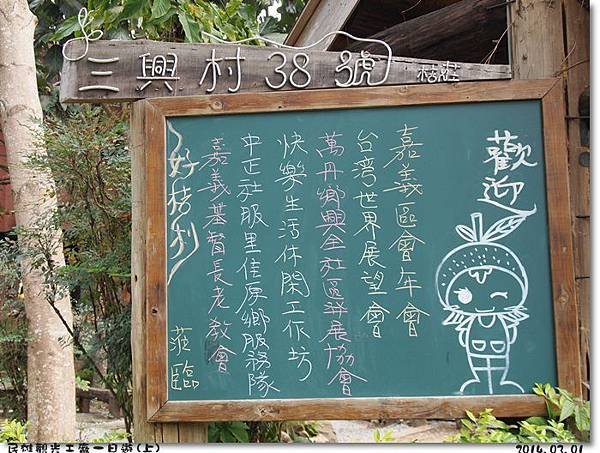 三興村38號 桔莊
歡迎
嘉義區會年會
台湾世界展望會
萬丹鄉興全社區發展協會
快樂生活休閑工作坊
中正社服里佳原鄉服務隊
嘉義基督長老教會
好桔利
莅臨
民雄觀光工廠一日遊(上)
2014.03.01